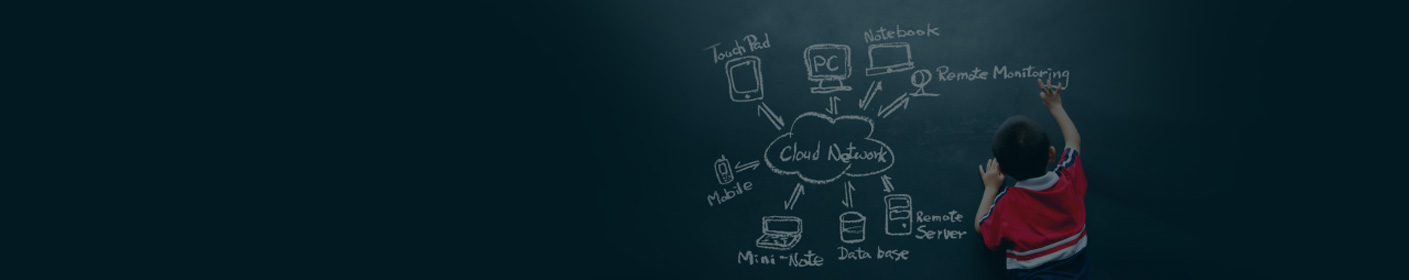 Touch Pad
PC
Notebook
Remote Monitoring
Cloud Network
Mobile
Mini-Note
Data base
Remote
Server